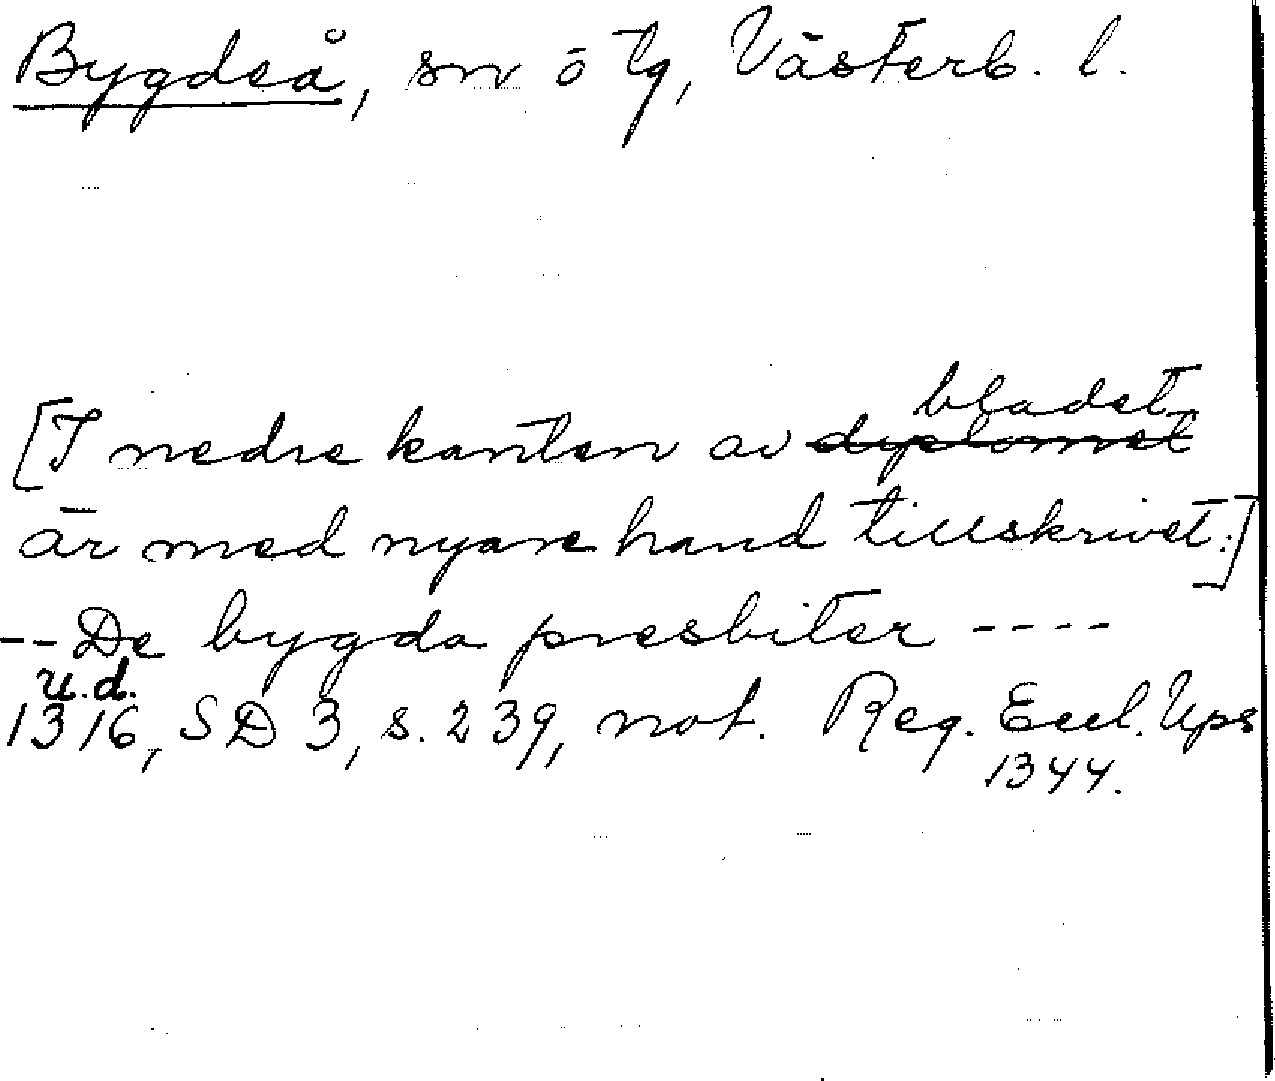 Bygdeå, sn ō tg, Västerb. l.
bladet
[I nedre kanten av dyplomet
är med nyare hand tillskrivet:]
-- De bygda presbiter ----
u.d.
1316, SD 3, s. 239, not. Reg. Eccl. Ups
1344.